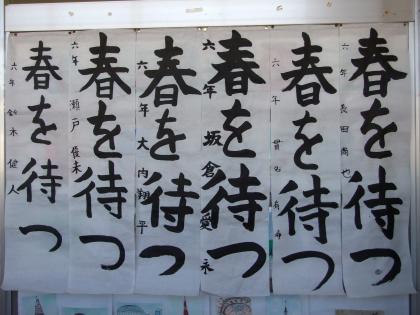 春を待つ
六年 長田尚也
春を待つ
六年
春を待つ
六年 坂倉愛永
春を待つ
六年 大内翔平
春を待つ
六年 瀬戸俊末
春を待つ
六年 鈴木健人